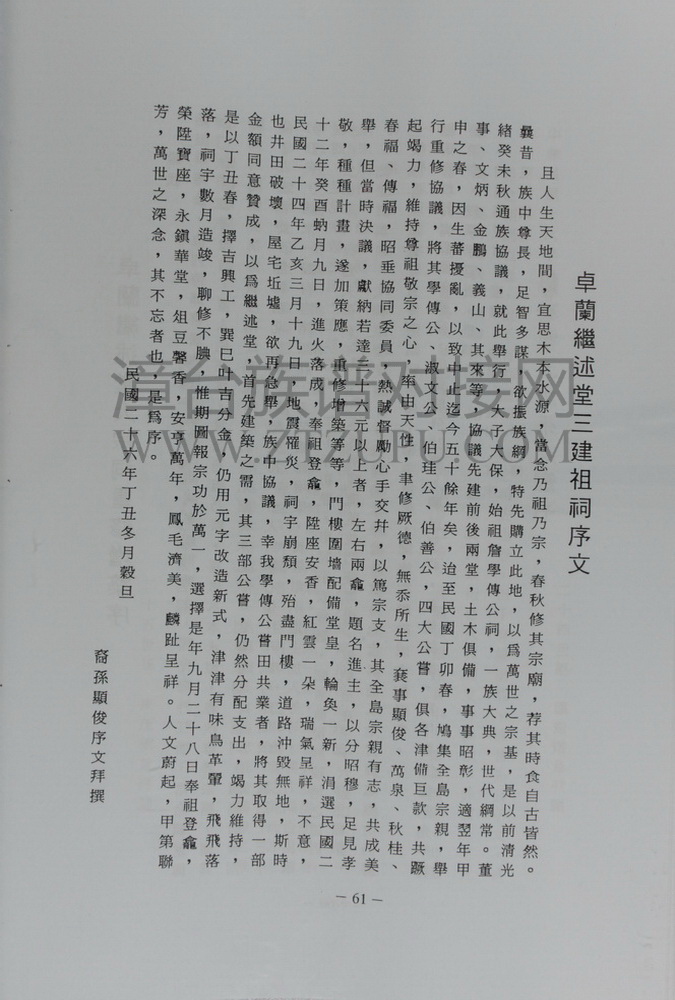 卓蘭繼述堂三建祖祠序文
且人生天地間，宜思木本水源，當念乃祖乃宗，春秋修其宗廟，荐其時食自古皆然。
曩昔，族中尊長，足智多謀，欲振族綱，特先購立此地，以為萬世之宗基，是以前清光
緒癸未秋通族協議，就此舉行，大子大保，始祖詹學傳公祠，一族大典，世代綱常。董
事、文炳、金鵬、義山、其來等，協議先建前後兩堂，土木俱備，事事昭彰，適翌年甲
申之春，因生蕃擾亂，以致中止迄今五十餘年矣，迨至民國丁卯春，鳩集全島宗親，舉
行重修協議，將其學傳公、淑文公、伯珪公、伯善公，四大公嘗，俱各津備巨款，共蹶
起竭力，維持尊祖敬宗之心，率由天性，聿修厥德，無忝所生，襄事顯俊、萬泉、秋桂、
春福、傳福，昭垂協同委員，熱誠督勵心手交幷，以篤宗支，其全島宗親有志，共成美
舉，但當時決議，獻納若達三十六元以上者，左右兩龕，題名進主，以分昭穆，足見孝
敬，種種計畫，遂加策應，重修增築等等，門樓圍墻配備堂皇，輪奐一新，涓選民國二
十二年癸酉蚋月九日，進火落成，奉祖登龕，陞座安香，紅雲一朵，瑞氣呈祥，不意，
民國二十四年乙亥三月十九日地震罹災，祠宇崩頹，殆盡門樓，道路沖毀無地，斯時
也井田破壞，屋宅坵墟，欲再急舉，族中協議，幸我學傳公嘗田共業者，將其取得一部
金額同意贊成，以為繼述堂，首先建築之需，其三部公嘗，仍然分配支出，竭力維持，
是以丁丑春，擇吉興工，巽巳叶吉分金，仍用元字改造新式，津津有味鳥革翬，飛飛落
落，祠宇數月造竣，聊修不腆，惟期圖報宗功於萬一，選擇是年九月二十八日奉祖登龕，
榮陞寶座，永鎮華堂，俎豆馨香，安享萬年，鳳毛濟美，麟趾呈祥。人文蔚起，甲第聯
芳，萬世之深念，其不忘者也，是為序。
民國二十六年丁丑冬月穀旦
裔孫顯俊序文拜撰
－61－
漳台族谱对接网
WWW.ZTZUFU.COM